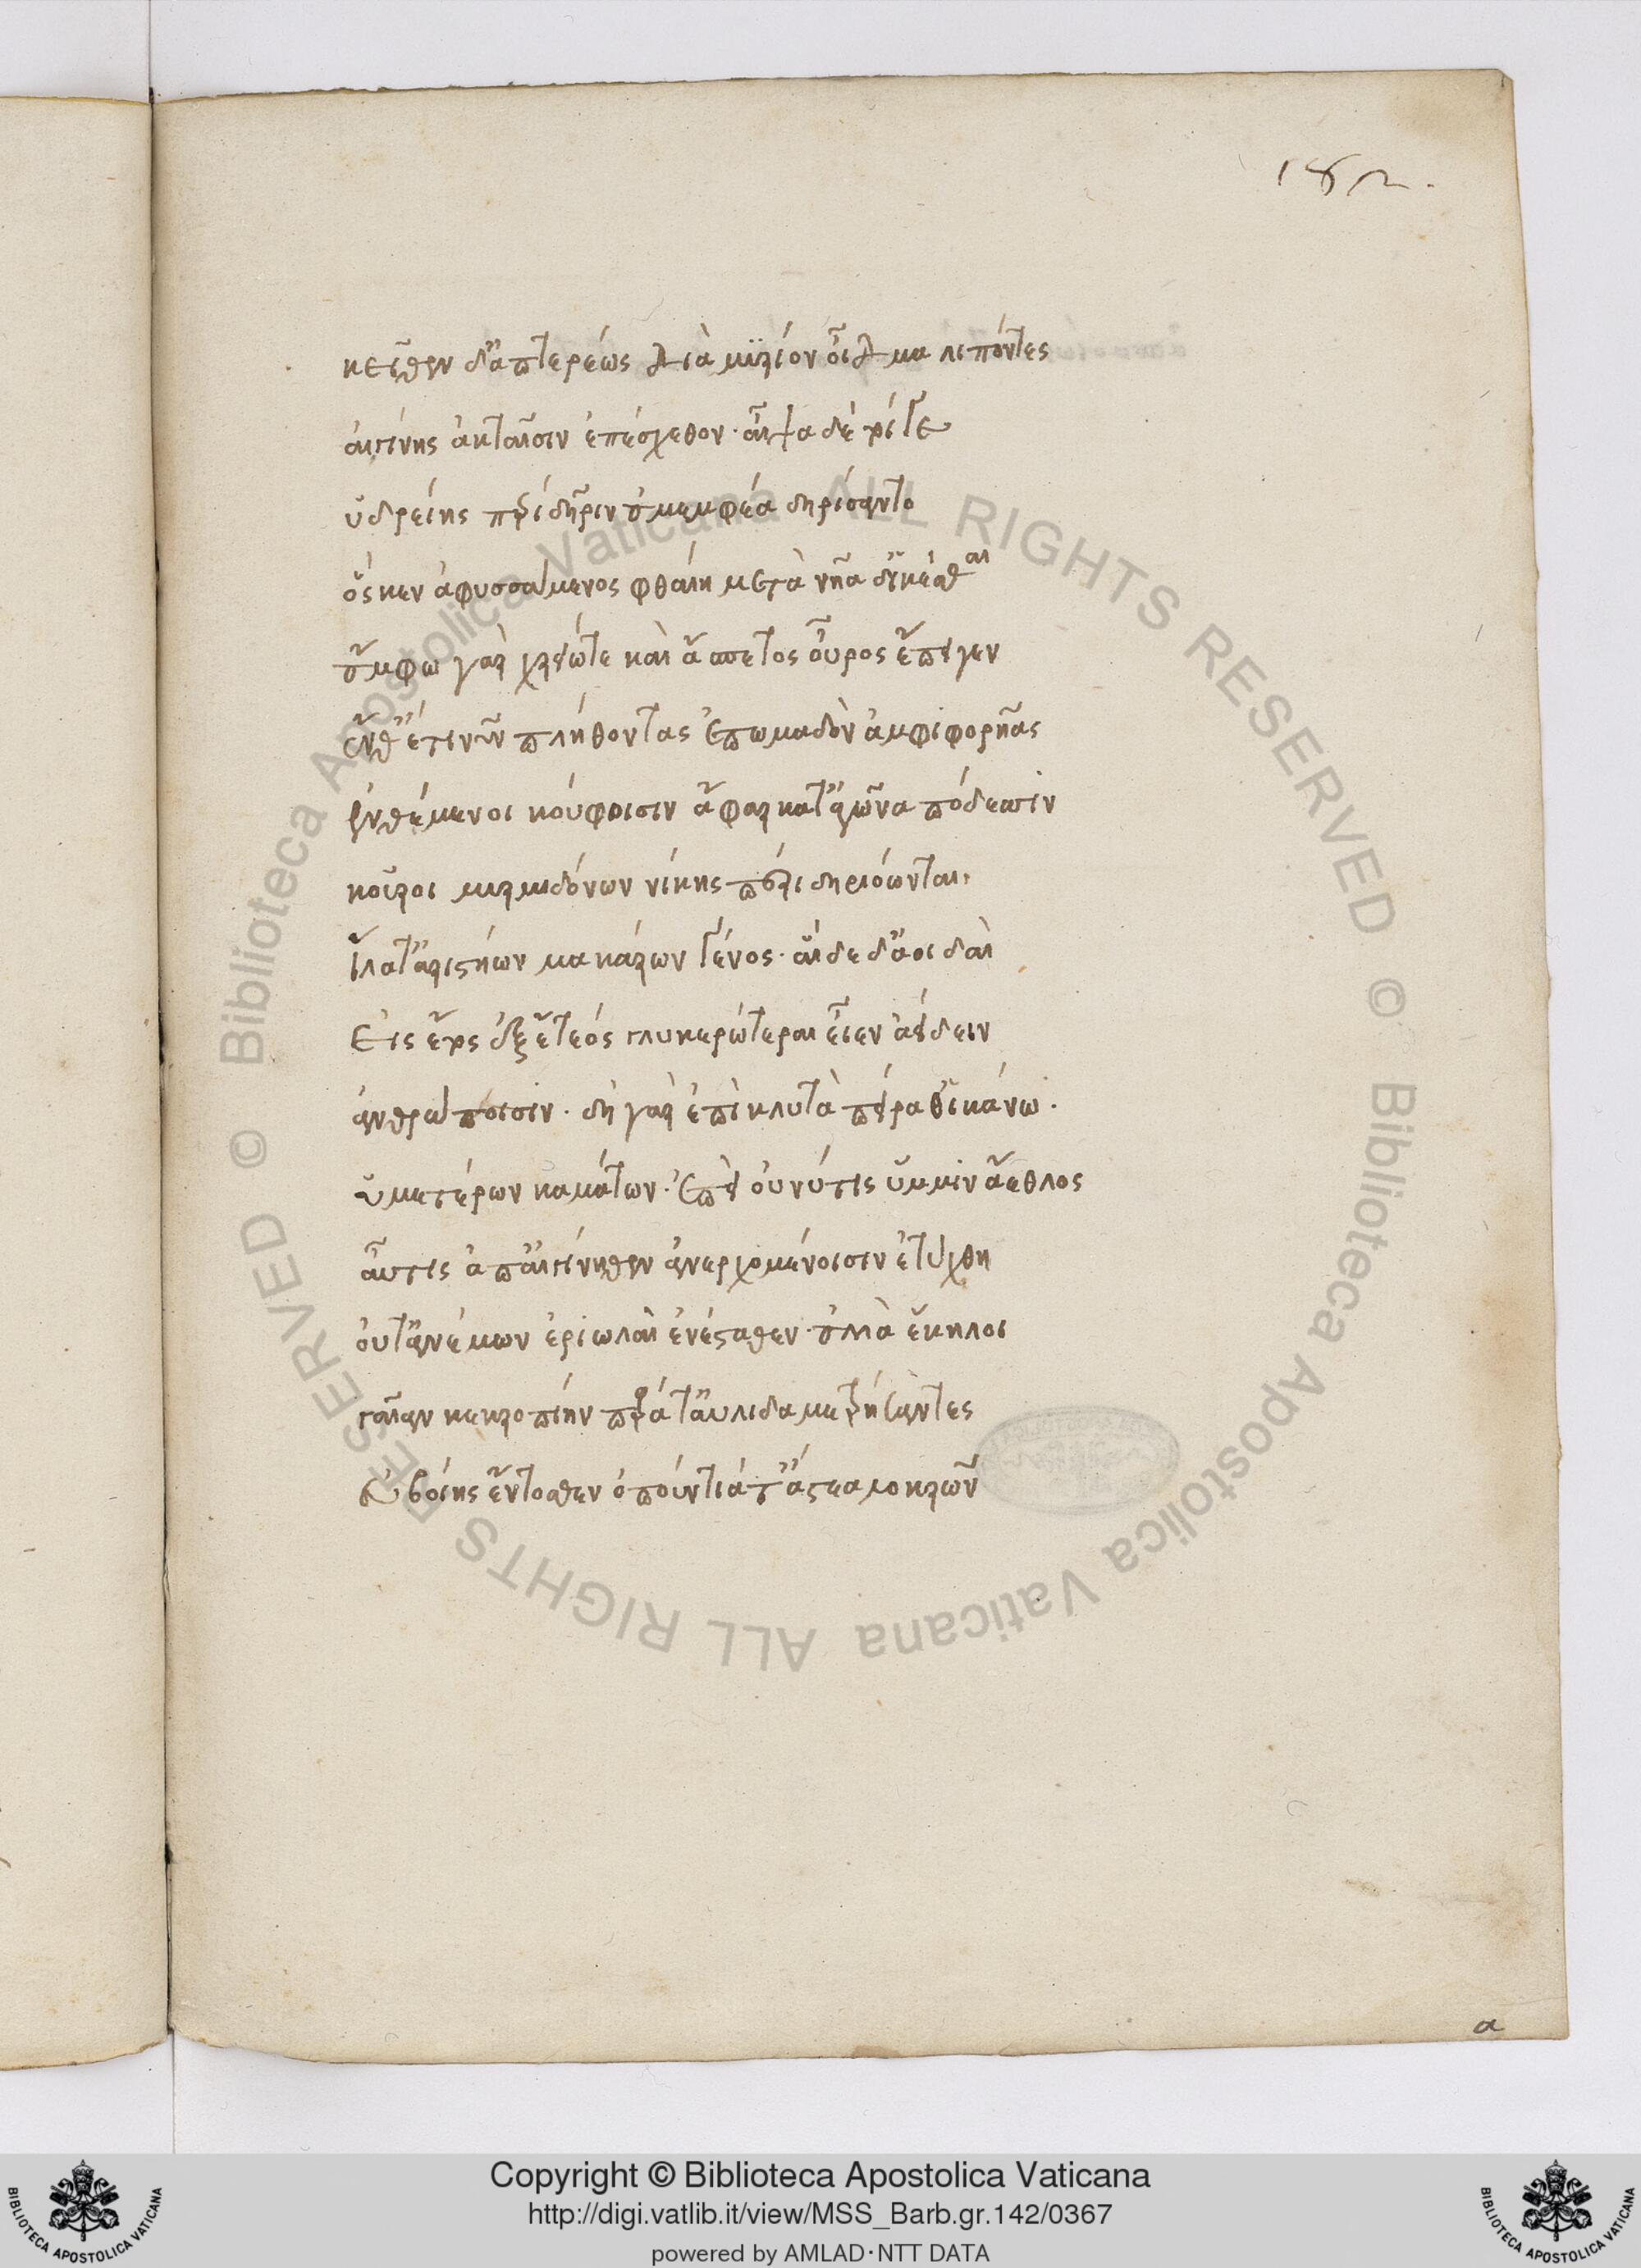 182.
κεῖθεν δ' ἀπτερέως διὰ μυρίον οἶδμα λιπόντες
αἰγίνης ἀκταῖσιν ἐπέσχεθον· αἶψα δέ τοί γε
ὑδρείης πέρι δῆριν ἀμεμφέα δηρίσαντο
ὅς κεν ἀφυσσάμενος φθαίη μετὰ νῆα δ' ἱκέσθαι
ἄμφω γὰρ χρειώ τε καὶ ἄσπετος οὖρος ἔπειγεν
ἔνθ' ἔτι νῦν πλήθοντας ἐπωμαδὸν ἀμφιφορῆας
ἐνθέμενοι κούφοισιν ἄφαρ κατ' ἀγῶνα πόδεσσιν
κοῦροι μυρμιδόνων νίκης πέρι δηριόωνται.
ἵλατ' ἀριστήων μακάρων γένος· αἵδε δ' ἀοιδαὶ
εἰς ἔτος ἐξ ἔτεος γλυκερώτεραι εἶεν ἀείδειν
ἀνθρώποισιν· δὴ γὰρ ἐπὶ κλυτὰ πείραθ' ἱκάνω·
ὑμετέρων καμάτων· ἐπεὶ οὔ νύ τις ὔμμιν ἄεθλος
αὖτις ἀπ' αἰγίνηθεν ἀνερχομένοισιν ἐτύχθη
οὔτ' ἀνέμων ἐριωλαὶ ἐνέσταθεν· ἀλλὰ ἕκηλοι
γαῖαν κεκροπίην παρά τ' αὐλίδα μετρήσαντες
εὐβοίης ἔντοσθεν ὀπούντιά τ' ἄστεα λοκρῶν
α
Copyright © Biblioteca Apostolica Vaticana
http://digi.vatlib.it/view/MSS_Barb.gr.142/0367
powered by AMLAD·NTT DATA
BIBLIOTECA APOSTOLICA VATICANA
BIBLIOTECA APOSTOLICA VATICANA
© Biblioteca Apostolica Vaticana ALL RIGHTS RESERVED © Biblioteca Apostolica Vaticana ALL RIGHTS RESERVED